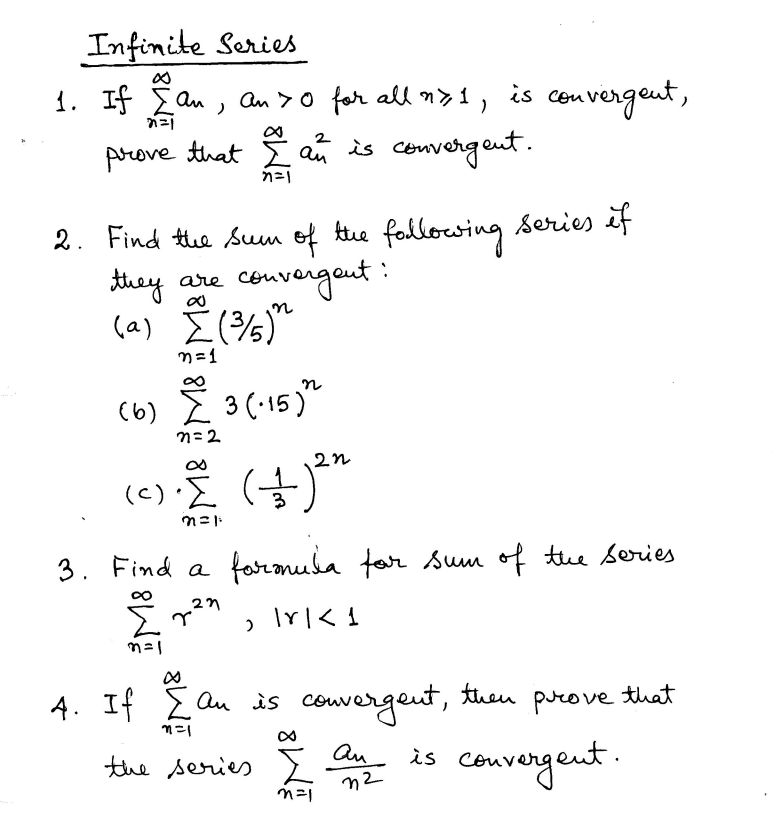 Infinite Series
1. If ∞∑n=1 an , an > 0 for all n ≥ 1, is convergent,
prove that ∞∑n=1 an² is convergent.
2. Find the sum of the following series if
they are convergent :
(a) ∞∑n=1 (3/5)^n
(b) ∞∑n=2 3(.15)^n
(c) ∞∑n=1 (1/3)^2n
3. Find a formula for sum of the series
∞∑n=1 r^2n , |r| < 1
4. If ∞∑n=1 an is convergent, then prove that
the series ∞∑n=1 an/n² is convergent.